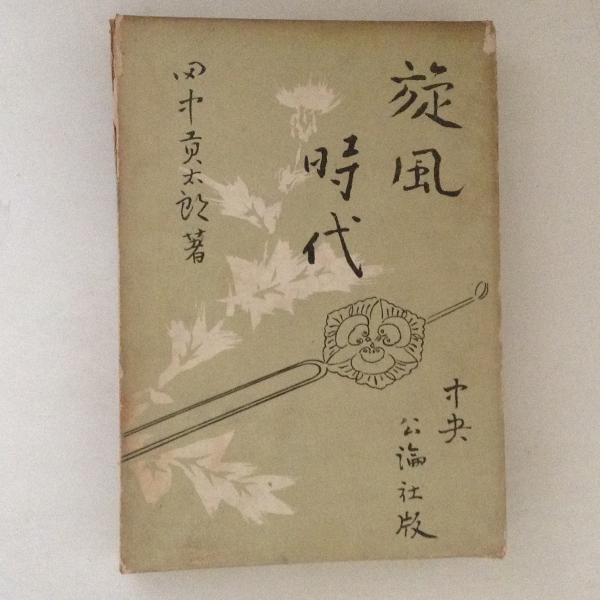 旋風
時代
田中貢太郎著
中央
公論社版